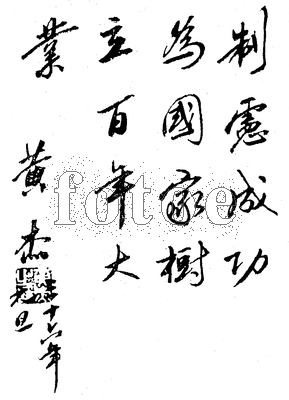 制憲成功
為國家樹
立百年大
業
黃杰
十六年
元旦
fotoe